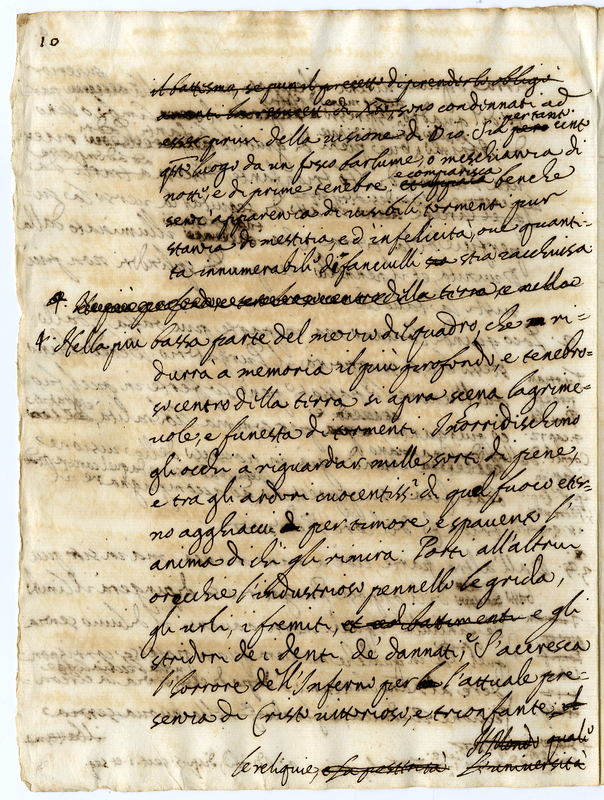 10
il battesimo, se pur il precetto di prender lo obligò
avanti la venuta di Xsto, sono condennati ad
esser privi della visione di Dio. Sia pero pertanto cinto
qsto luogo da un fosco barlume, o meschianza di
notte, e di prime tenebre. e comparisca benche
senz'apparenza di visibili tormenti pur
stanza di mestitia, e d'infelicità, ove quanti-
ta innumerabile de fanciulli stia racchiusa
4. della terra e nella
4. Nella più bassa parte del mezzo del quadro, che ri-
durrà a memoria il più profondo, e tenebro-
so centro della terra si apra scena lagrime-
vole, e funesta di tormenti. Inorridischino
gli occhi à riguardar mille sorti di pene,
e tra gli ardori cuocentissi. di quel fuoco eter-
no agghiacci di per timore, e spavento l'
anima di chi gli rimira. Porti all'altrui
orecchie l'industrioso pennello le grida,
gli urli, i fremiti, et i dibattimenti e gli
stridori de i denti de' dannati, e s'accresca
l'orrore dell'Inferno per l'attuale pre-
senza di Cristo vittorioso, e trionfante, et
il Mondo quali
le reliquie, e la posterità l'università